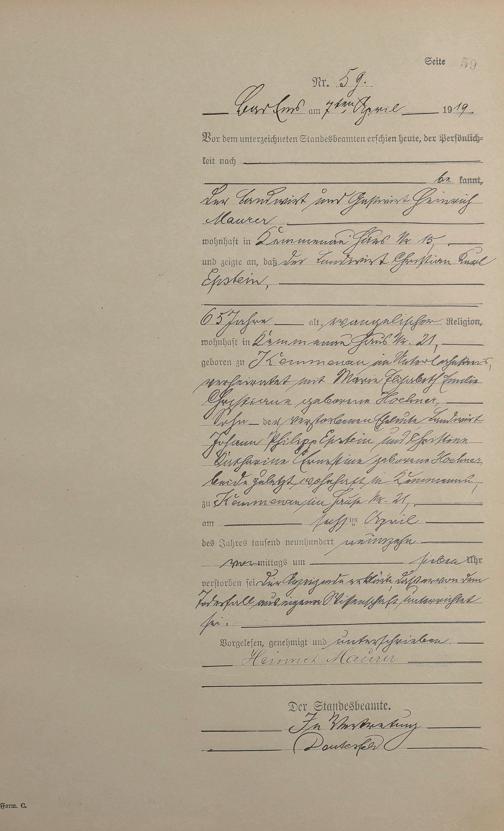 Seite 59
Nr. 59.
Bad Ems am 7ten April 1919
Vor dem unterzeichneten Standesbeamten erschien heute, der Persönlich-
keit nach
be kannt,
der Landwirt und Gastwirt Heinrich
Maurer
wohnhaft in Kemmenau Haus Nr. 15,
und zeigte an, daß der Landwirt Christian Karl
Epstein,
65 Jahre alt, evangelischer Religion,
wohnhaft in Kemmenau Haus Nr. 21,
geboren zu Kemmenau im Unterlahnkreis,
verheiratet mit Marie Elisabeth Emilie
Christiane geborene
Sohn der verstorbenen Eheleute Landwirt
Johann Philipp Epstein und Christine
Katharine Ernestine geborene
beide zuletzt wohnhaft in Kemmenau,
zu Kemmenau im Hause Nr. 21,
am sechsten April
des Jahres tausend neunhundert neunzehn
vor mittags um sieben Uhr
verstorben sei. Der Anzeigende erklärte, daß er von dem
Todesfall aus eigener Wissenschaft unterrichtet
sei.
Vorgelesen, genehmigt und unterschrieben
Heinrich Maurer
Der Standesbeamte.
In Vertretung
Form. C.